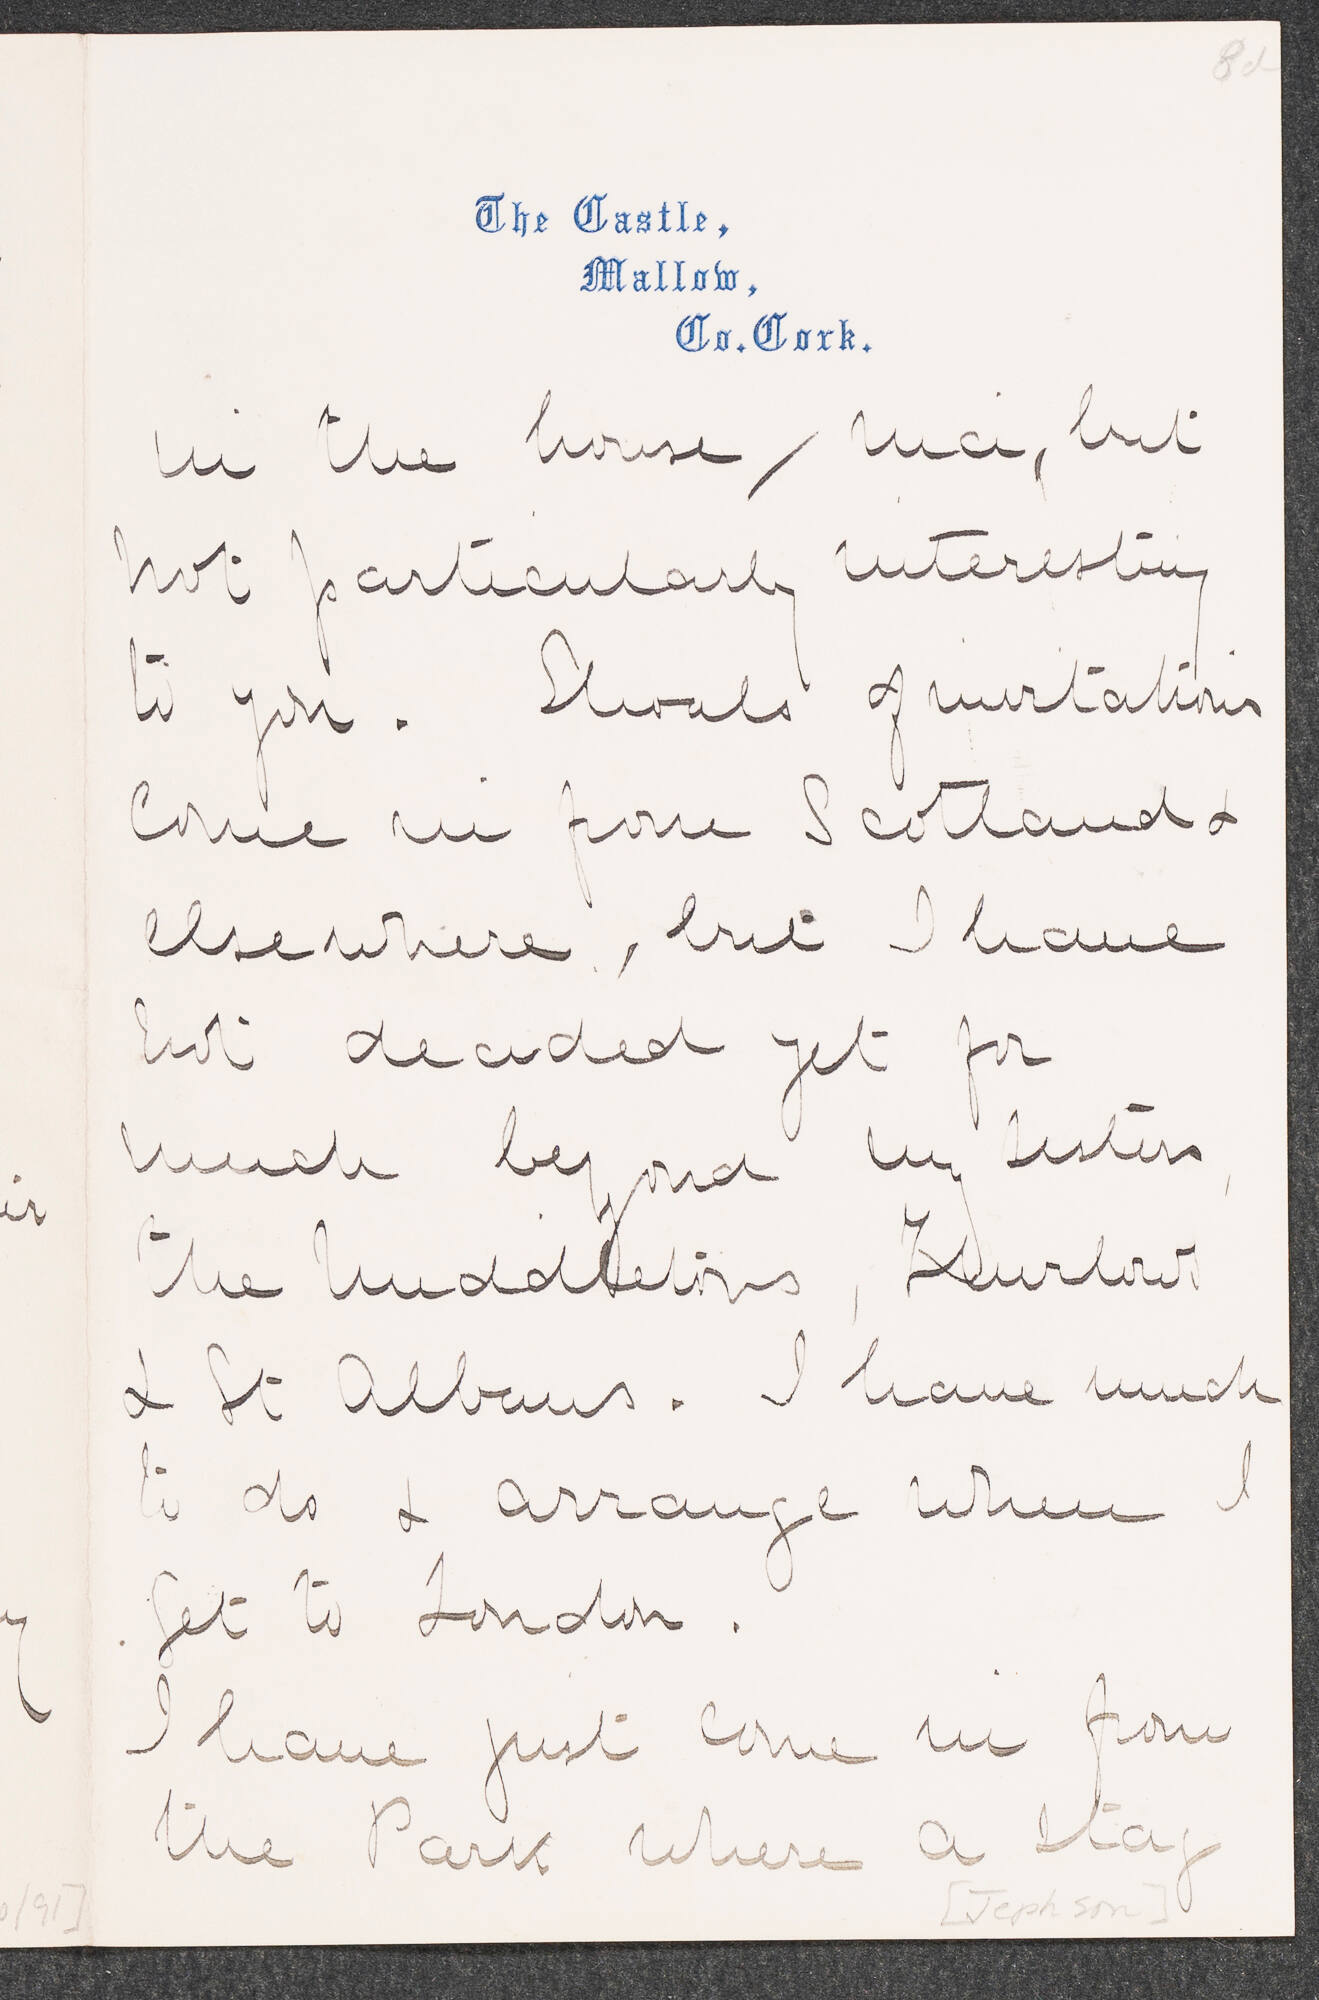 8d
The Castle,
Mallow,
Co. Cork.
in the house / nice, but
not particularly interesting
to you. Shoals of invitations
come in from Scotland &
elsewhere, but I have
not decided yet for
much beyond my sisters,
the Middletons, Thurlows
& St Albans. I have much
to do & arrange when I
get to London.
I have just come in from
the Park where a stag
[Jephson]
/91]